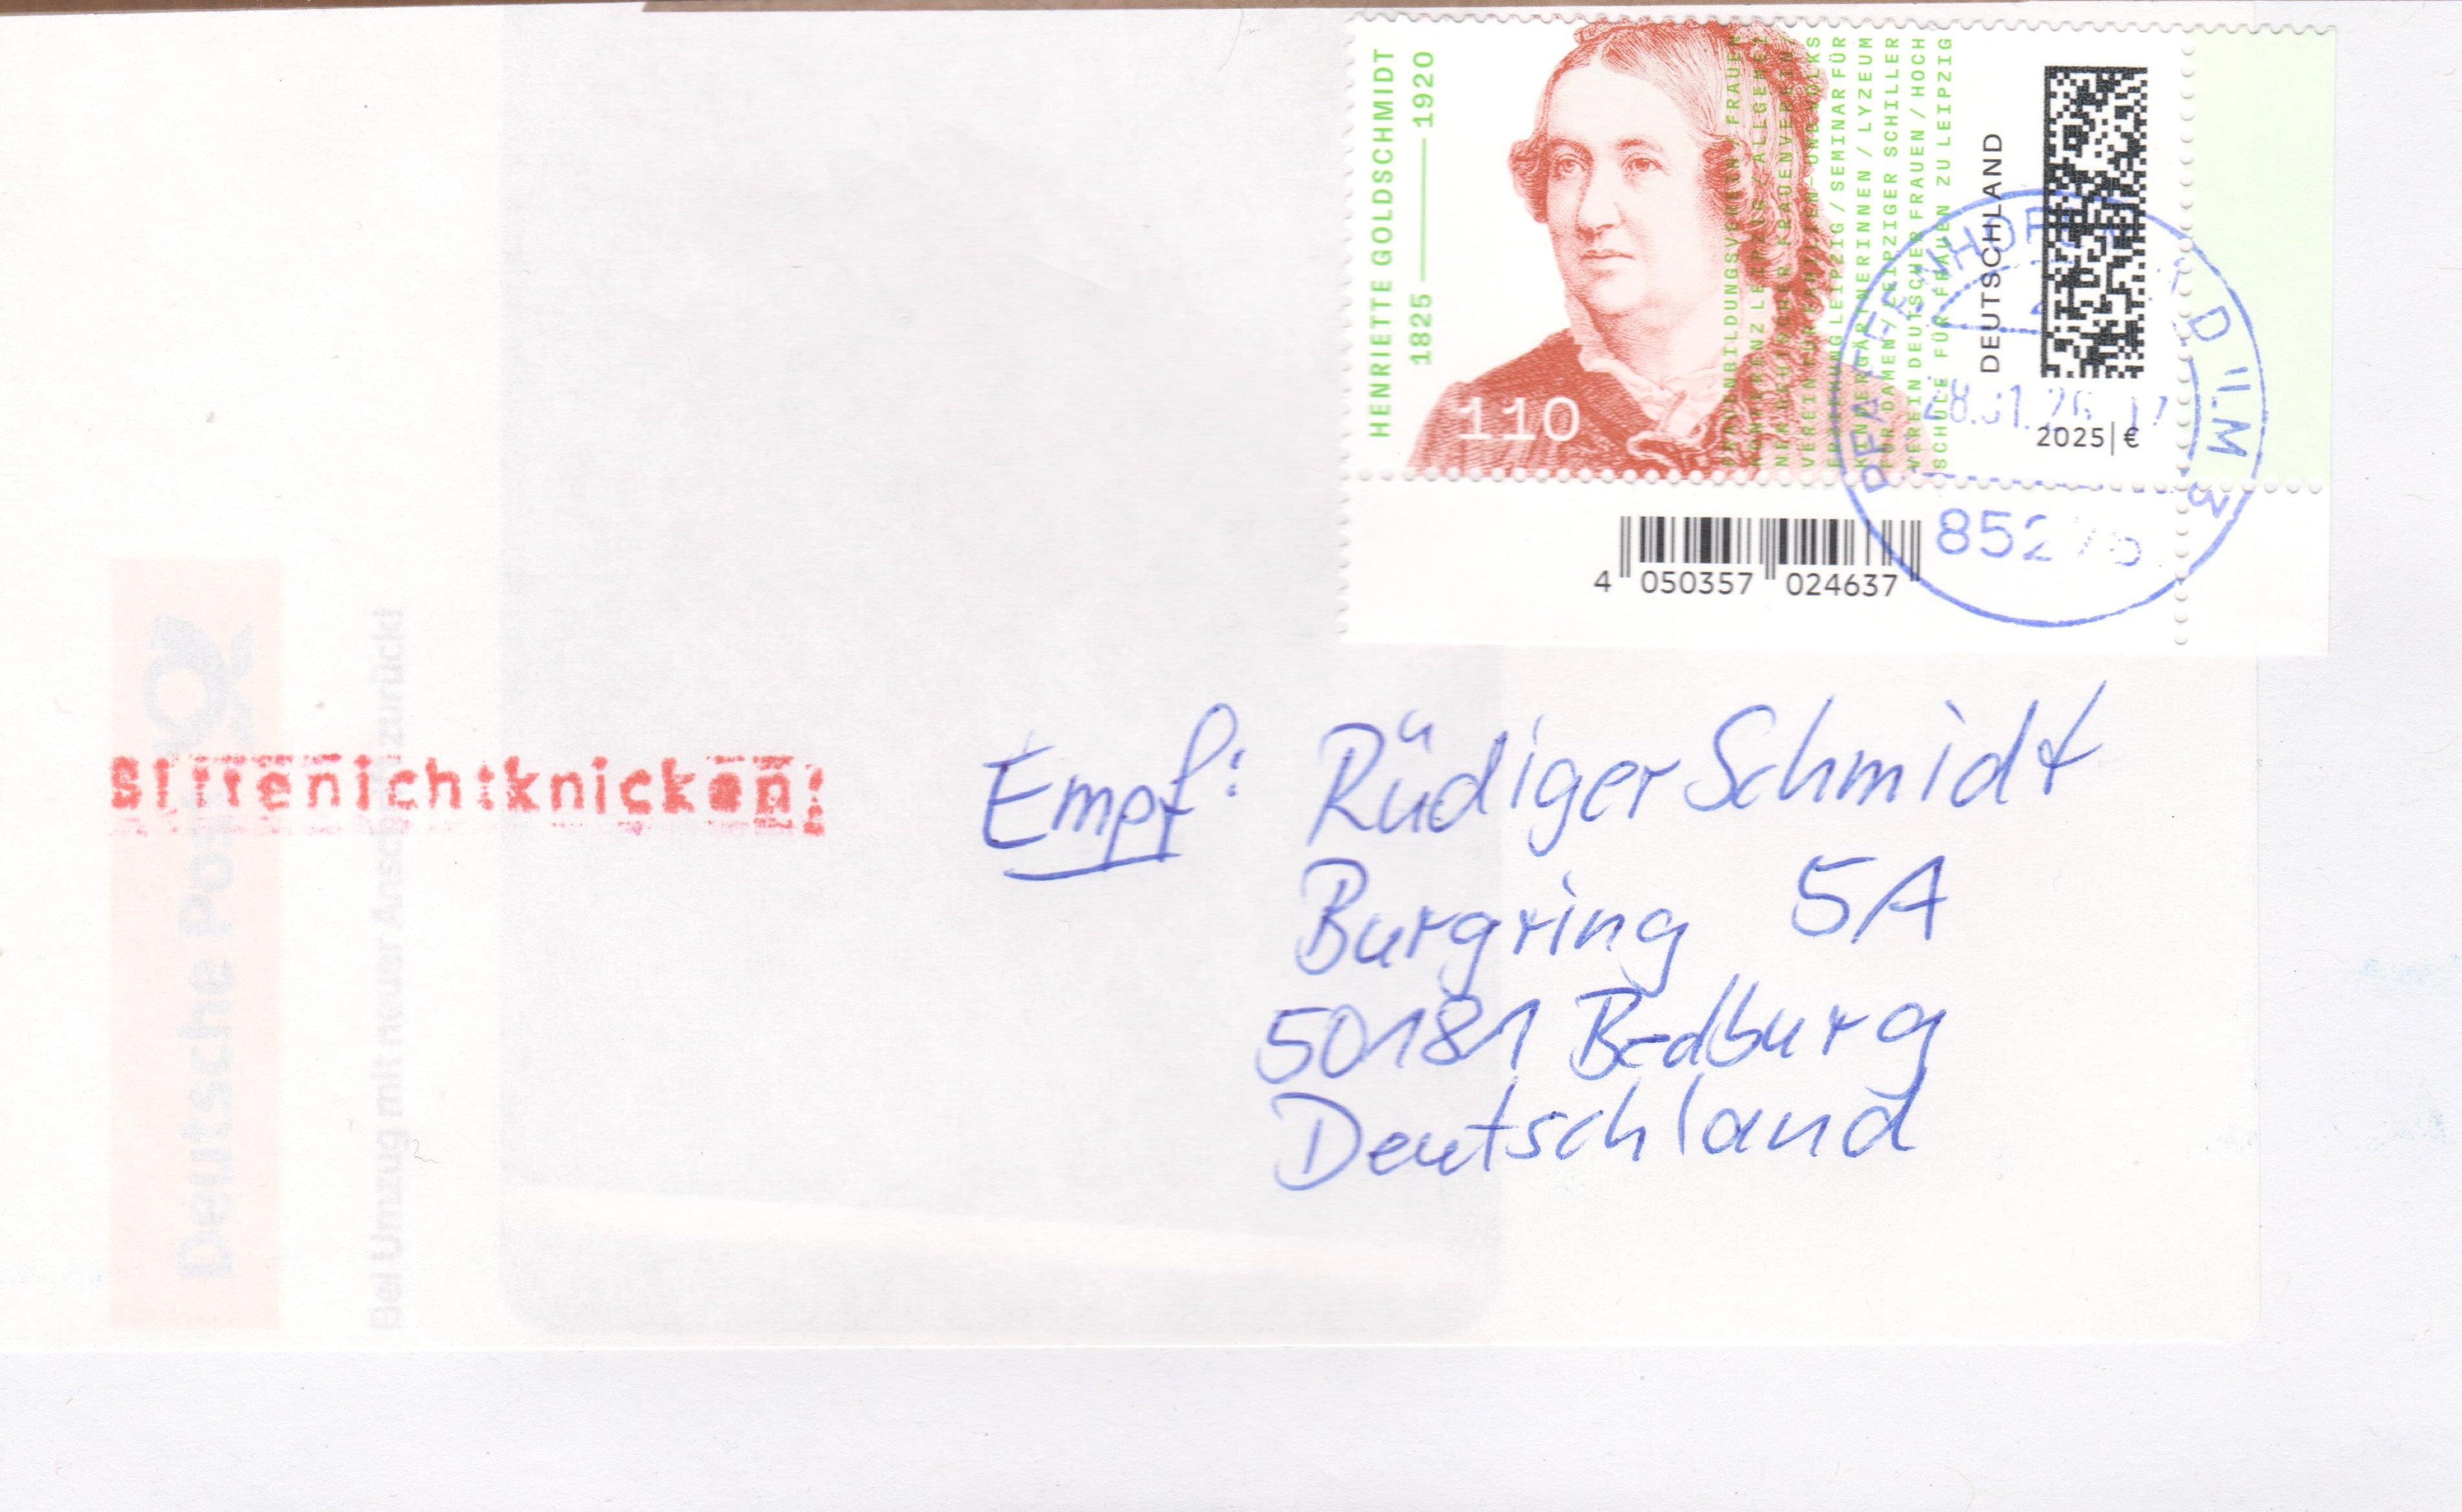 HENRIETTE GOLDSCHMIDT
1825 — 1920
110
DEUTSCHLAND
2025|€
SCHULE FÜR FRAUEN ZU LEIPZIG
VEREIN DEUTSCHER FRAUEN / HOCH
FÜR DAMEN / LEIPZIGER SCHILLER
KINDERGÄRTNERINNEN / LYZEUM
LEIPZIG / SEMINAR FÜR
PFAFFENHOFEN A D ILM 3
28.01.26 17
85276
4 050357 024637
Bittenichtknicken!
Empf: Rüdiger Schmidt
Burgring 5A
50181 Bedburg
Deutschland
Deutsche Post
Bei Umzug mit neuer Anschrift zurück!